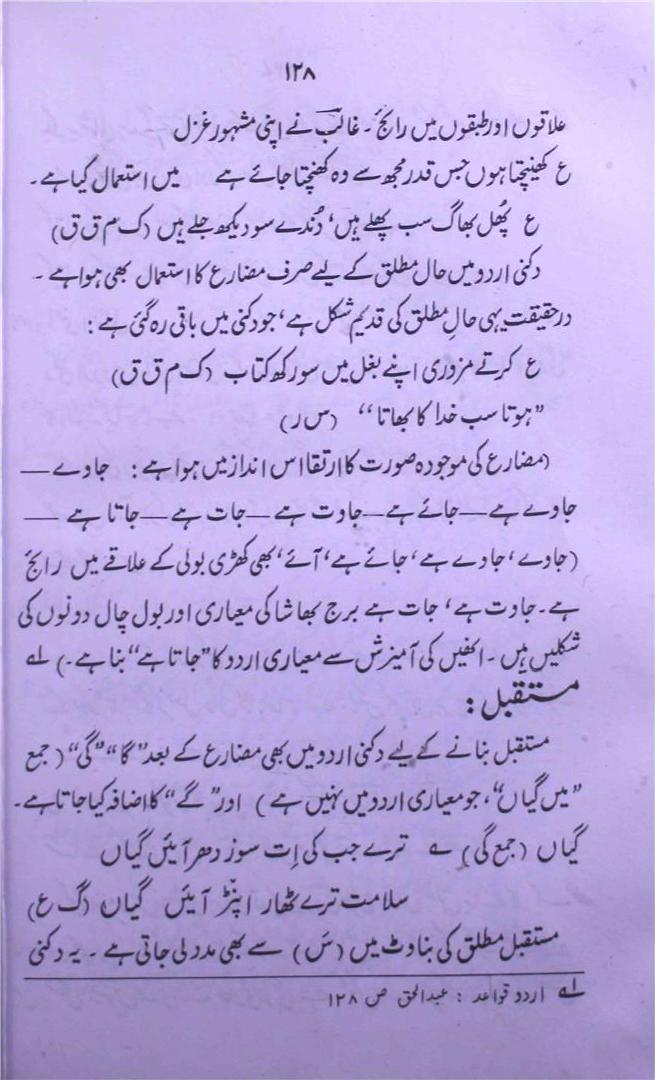 ۱۲۸
علاقوں اور طبقوں میں رائج ۔ غالبؔ نے اپنی مشہور غزل
ع کھینچتا ہوں جس قدر مجھ سے وہ کھنچتا جائے ہے میں استعمال کیا ہے ۔
ع پُھل بھاگ سب پھلے ہیں، دُندے سو دیکھ جلے ہیں (ک م ق ق)
دکنی اردو میں حال مطلق کے لیے صرف مضارع کا استعمال بھی ہوا ہے ۔
درحقیقت یہی حالِ مطلق کی قدیم شکل ہے، جو دکنی میں باقی رہ گئی ہے :
ع کرتے مزوری اپنے بغل میں سو رکھ کتاب (ک م ق ق)
”ہوتا سب خدا کا بھاتا“ (س ر)
(مضارع کی موجودہ صورت کا ارتقا اس انداز میں ہوا ہے : جاوے —
جاوے ہے — جائے ہے — جاوت ہے — جات ہے — جاتا ہے —
(جاوے، جاوے ہے، جائے ہے، آئے، بھی کھڑی بولی کے علاقے میں رائج
ہے ۔ جاوت ہے، جات ہے برج بھاشا کی معیاری اور بول چال دونوں کی
شکلیں ہیں ۔ انھیں کی آمیزش سے معیاری اردو کا ”جاتا ہے“ بنا ہے ۔) ؂۱
مستقبل :
مستقبل بنانے کے لیے دکنی اردو میں بھی مضارع کے بعد ”گا“ ”گی“ (جمع
”میں گیاں“، جو معیاری اردو میں نہیں ہے) اور ”گے“ کا اضافہ کیا جاتا ہے ۔
گیاں (جمع گی) ؂ ترے جب کی اِت سوز دھر آئیں گیاں
سلامت ترے ٹھار اپنڑ آئیں گیاں (گ ع)
مستقبل مطلق کی بناوٹ میں (سَ) سے بھی مدد لی جاتی ہے ۔ یہ دکنی
؂۱ اردو قواعد : عبدالحق ص ۱۲۸